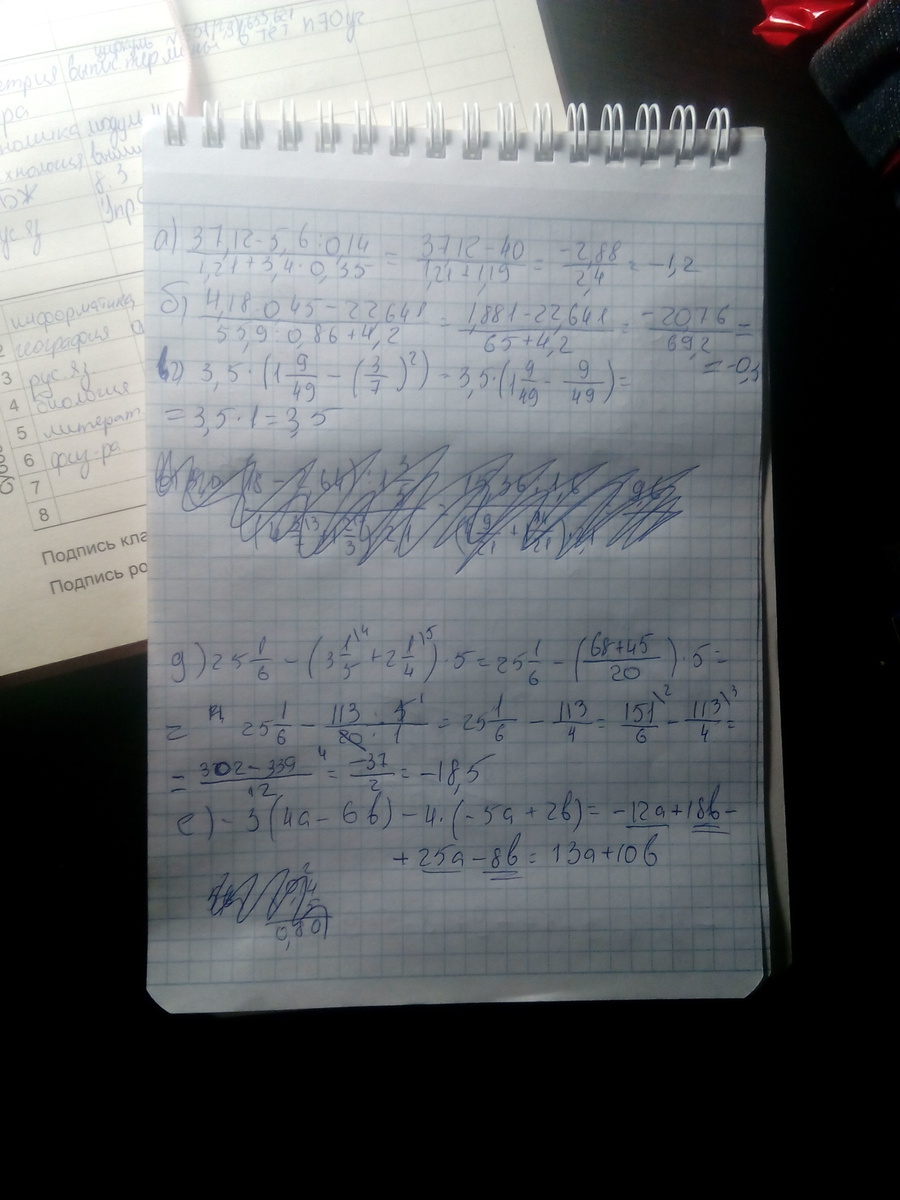 циркуль
выпис терм
в тет п70уч
ра
модуль
8, 3
БЖ
рус яз
информатика
география
3 рус яз
4 биология
5 литерат
6 физ-ра
7
8
Подпись кла
Подпись ро
а) (37,12-5,6:0,14)/(1,21+3,4·0,35) = (37,12-40)/(1,21+1,19) = -2,88/2,4 = -1,2
б) (4,18·0,45-22,641)/(55,9:0,86+4,2) = (1,881-22,641)/(65+4,2) = -20,76/69,2 =
= -0,3
г) 3,5·(1 9/49 - (3/7)²) = 3,5·(1 9/49 - 9/49) =
= 3,5·1 = 3,5
д) 25 1/6 - (3 1/5 \4 + 2 1/4 \5)·5 = 25 1/6 - ((68+45)/20)·5 =
= 25 1/6 - (113·5)/(20·1) = 25 1/6 - 113/4 = 151/6 \2 - 113/4 \3 =
= (302-339)/12 = -37/2 = -18,5
е) -3(4a-6b)-4·(-5a+2b) = -12a+18b-
+25a-8b = 13a+10b
0,80